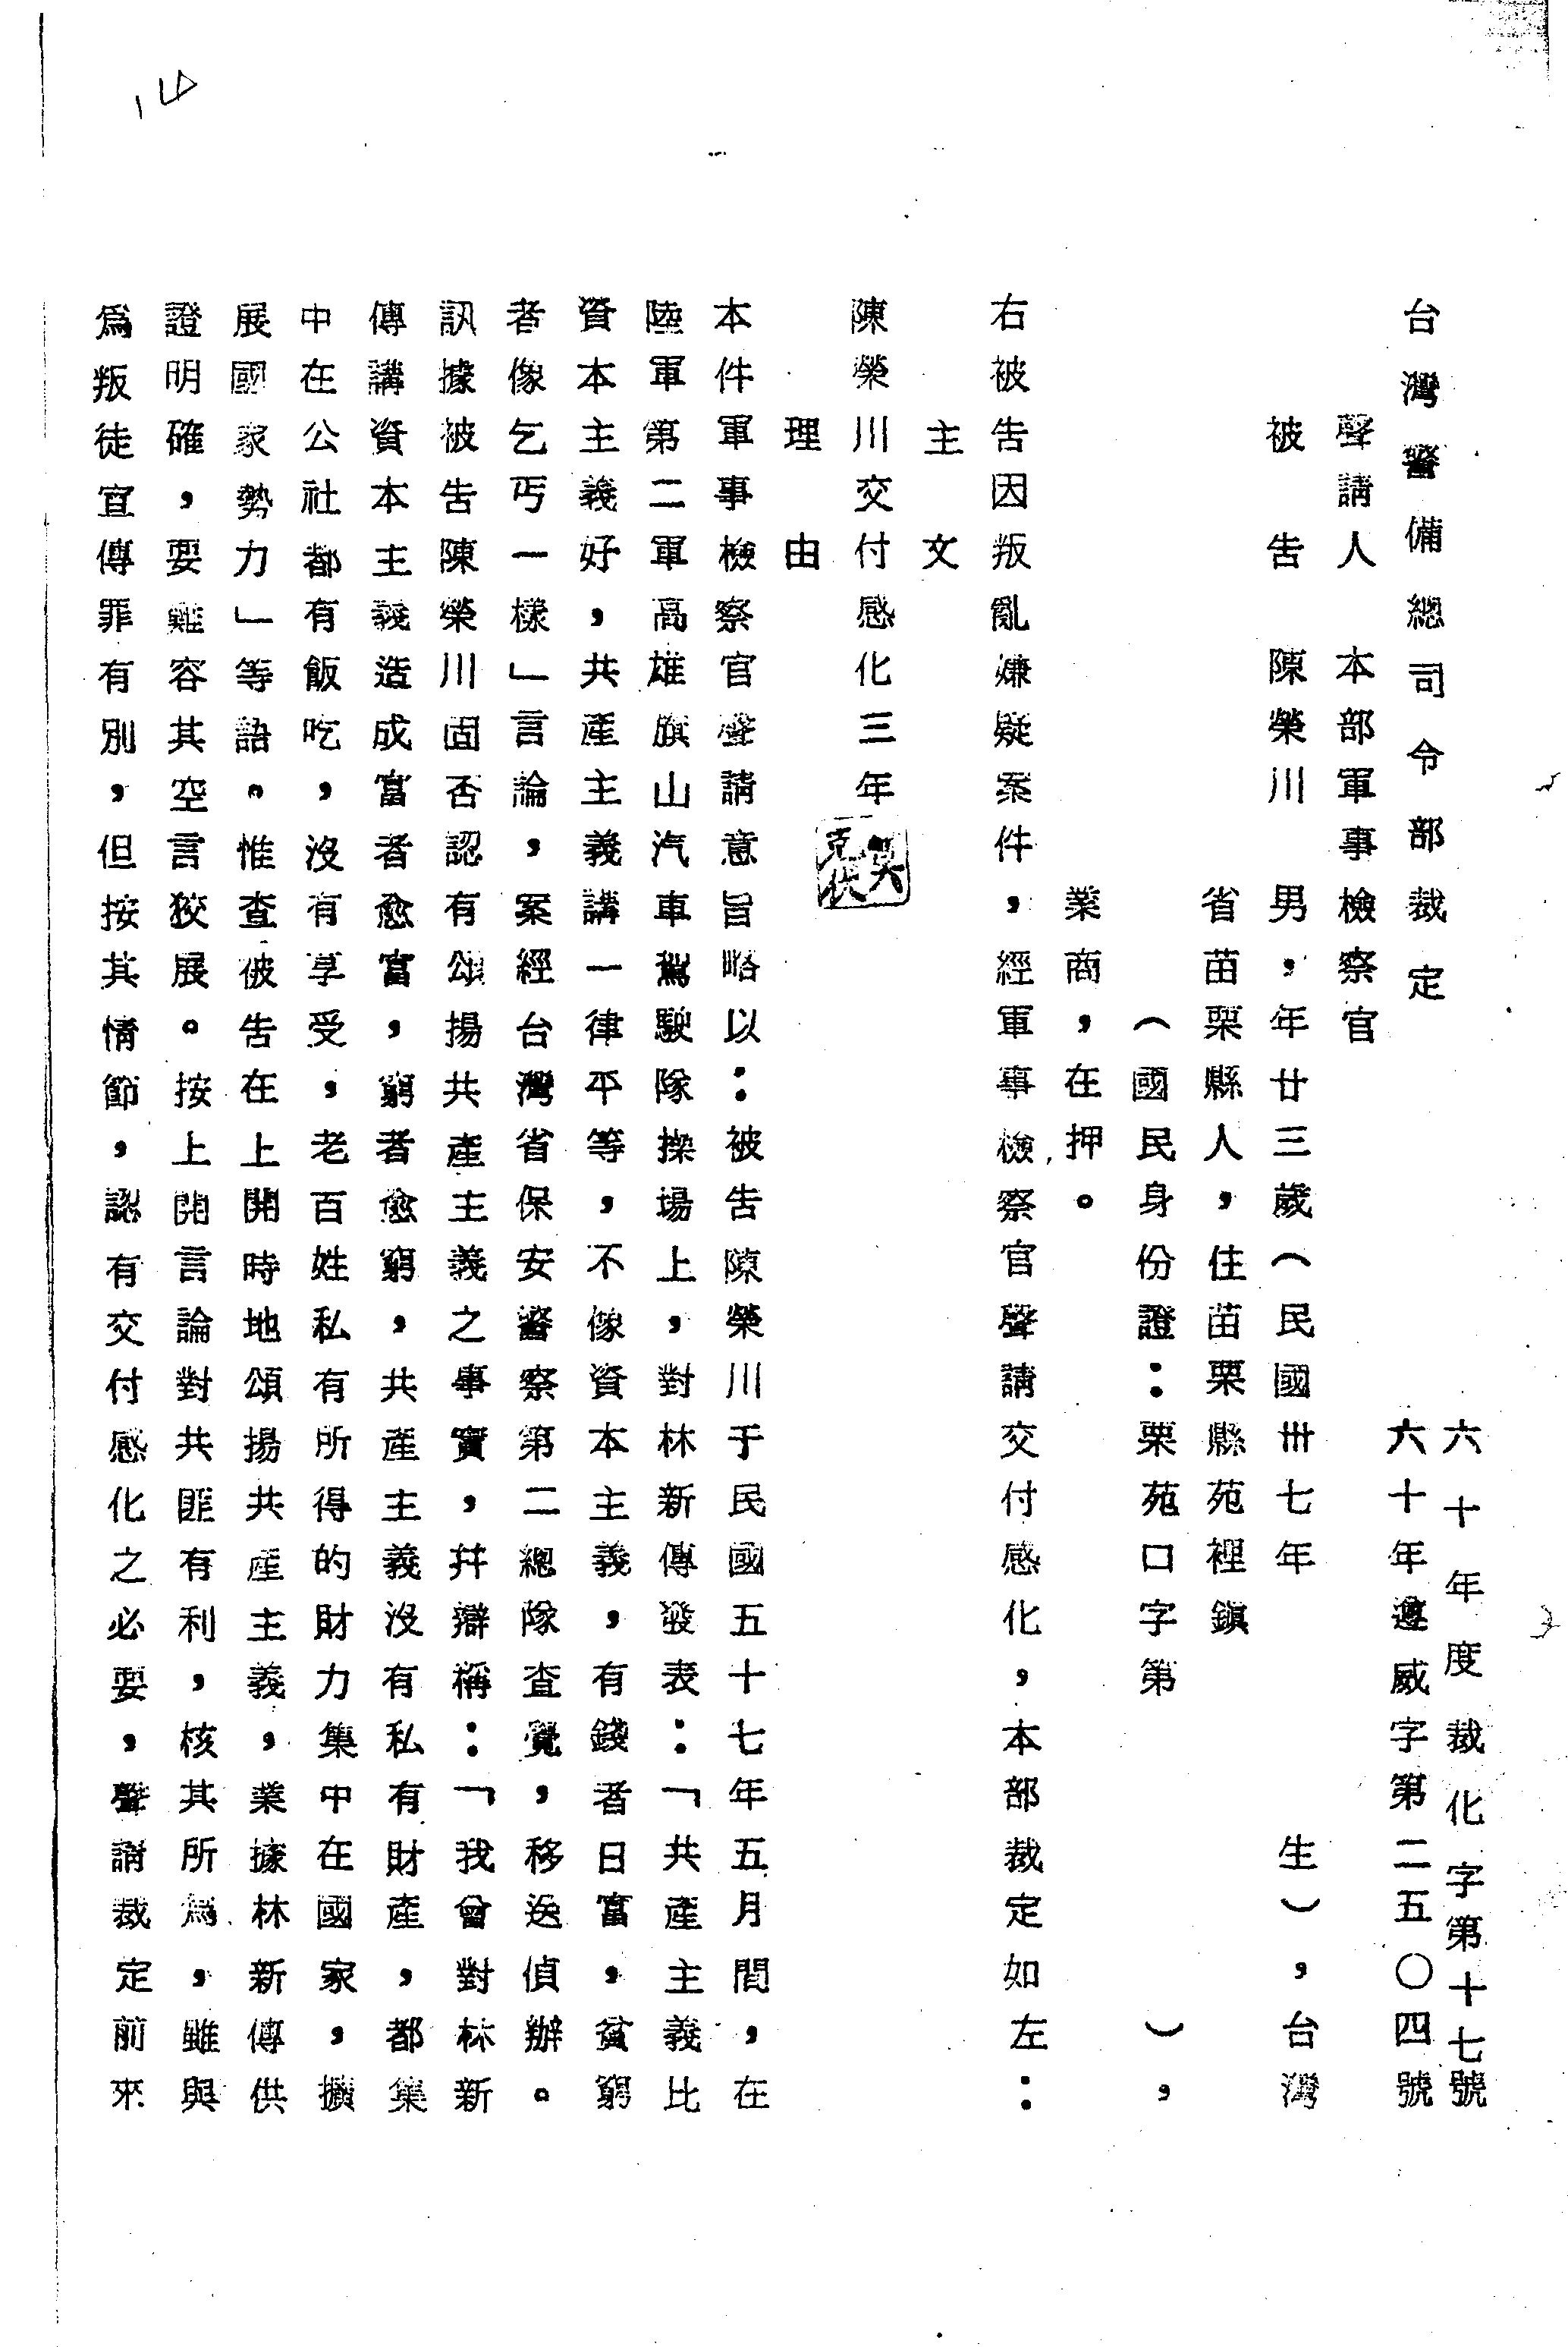 六十年度裁化字第十七號
六十年遵威字第二五〇四號
台灣警備總司令部裁定
聲請人　本部軍事檢察官
被告　陳榮川　男，年廿三歲（民國卅七年　生），台灣
省苗栗縣人，住苗栗縣苑裡鎮
（國民身份證：栗苑口字第　），
業商，在押。
右被告因叛亂嫌疑案件，經軍事檢察官聲請交付感化，本部裁定如左：
主文
陳榮川交付感化三年
理由
本件軍事檢察官聲請意旨略以：被告陳榮川于民國五十七年五月間，在
陸軍第二軍高雄旗山汽車駕駛隊操場上，對林新傳發表：「共產主義比
資本主義好，共產主義講一律平等，不像資本主義，有錢者日富，貧窮
者像乞丐一樣」言論，案經台灣省保安警察第二總隊查覺，移送偵辦。
訊據被告陳榮川固否認有頌揚共產主義之事實，并辯稱：「我曾對林新
傳講資本主義造成富者愈富，窮者愈窮，共產主義沒有私有財產，都集
中在公社都有飯吃，沒有享受，老百姓私有所得的財力集中在國家，擴
展國家勢力」等語。惟查被告在上開時地頌揚共產主義，業據林新傳供
證明確，要難容其空言狡展。按上開言論對共匪有利，核其所為，雖與
爲叛徒宣傳罪有別，但按其情節，認有交付感化之必要，聲請裁定前來